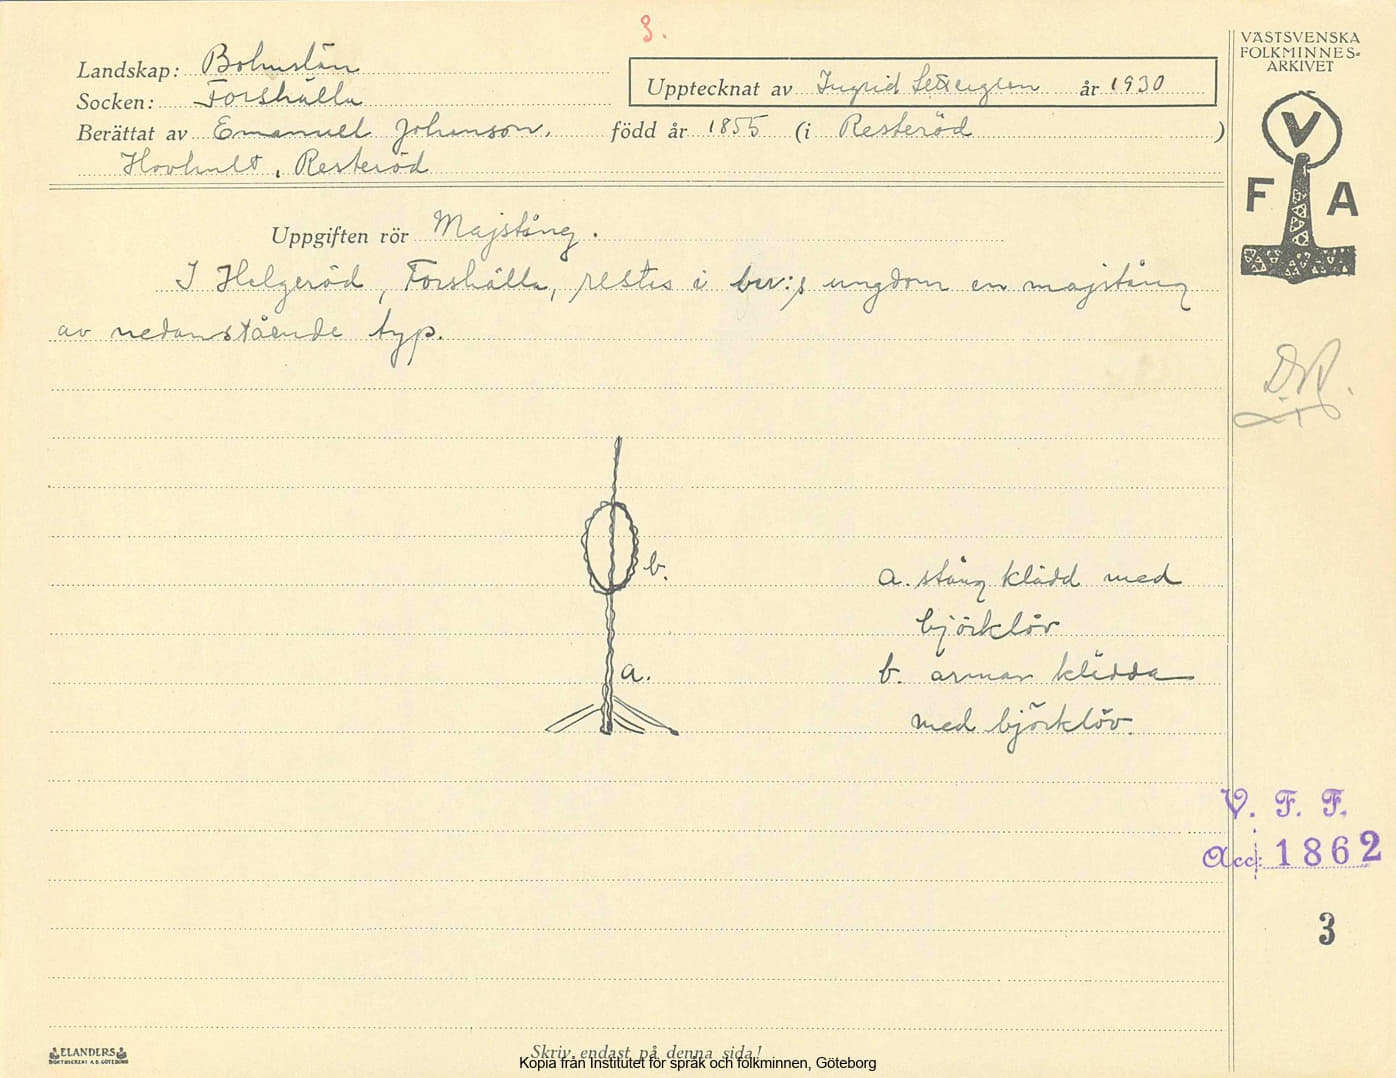 3.
VÄSTSVENSKA
FOLKMINNES-
ARKIVET
Landskap: Bohuslän
Upptecknat av Ingrid Settergren år 1930
Socken: Forshälla
Berättat av Emanuel Johanson, född år 1855 (i Resteröd )
Hovhult, Resteröd
V
F A
Uppgiften rör Majstång.
I Helgeröd, Forshälla, restes i ber:s ungdom en majstång
av nedanstående typ.
b.
a. stång klädd med
björklöv
a.
b. armar klädda
med björklöv.
V. F. F.
Acc: 1862
3
ELANDERS
BOKTRYCKERI A.B. GÖTEBORG
Skriv endast på denna sida!
Kopia från Institutet för språk och folkminnen, Göteborg